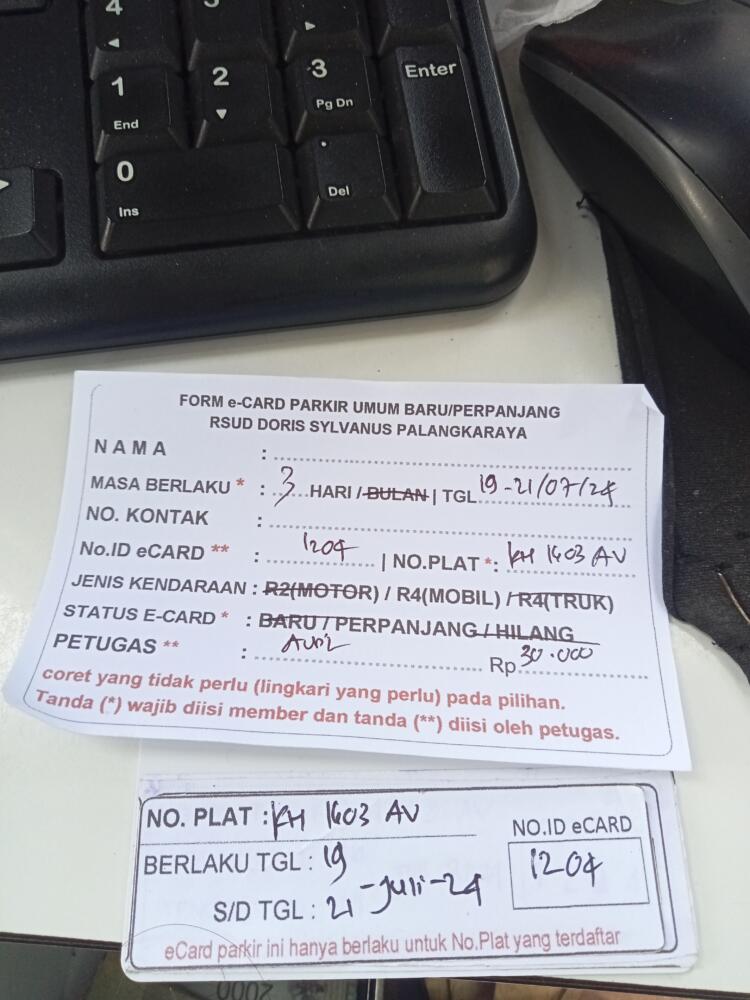 4
1
End
2
3
Pg Dn
Enter
0
Ins
.
Del
FORM e-CARD PARKIR UMUM BARU/PERPANJANG
RSUD DORIS SYLVANUS PALANGKARAYA
NAMA :
MASA BERLAKU * : 3 HARI / BULAN | TGL 19-21/07/24
NO. KONTAK :
No.ID eCARD ** : 1204 | NO.PLAT *: KH 1603 AV
JENIS KENDARAAN : R2(MOTOR) / R4(MOBIL) / R4(TRUK)
STATUS E-CARD * : BARU / PERPANJANG / HILANG
PETUGAS ** : Rp 30.000
coret yang tidak perlu (lingkari yang perlu) pada pilihan.
Tanda (*) wajib diisi member dan tanda (**) diisi oleh petugas.
NO. PLAT : KH 1603 AV
NO.ID eCARD
1204
BERLAKU TGL : 19
S/D TGL : 21 -Juli-24
eCard parkir ini hanya berlaku untuk No.Plat yang terdaftar